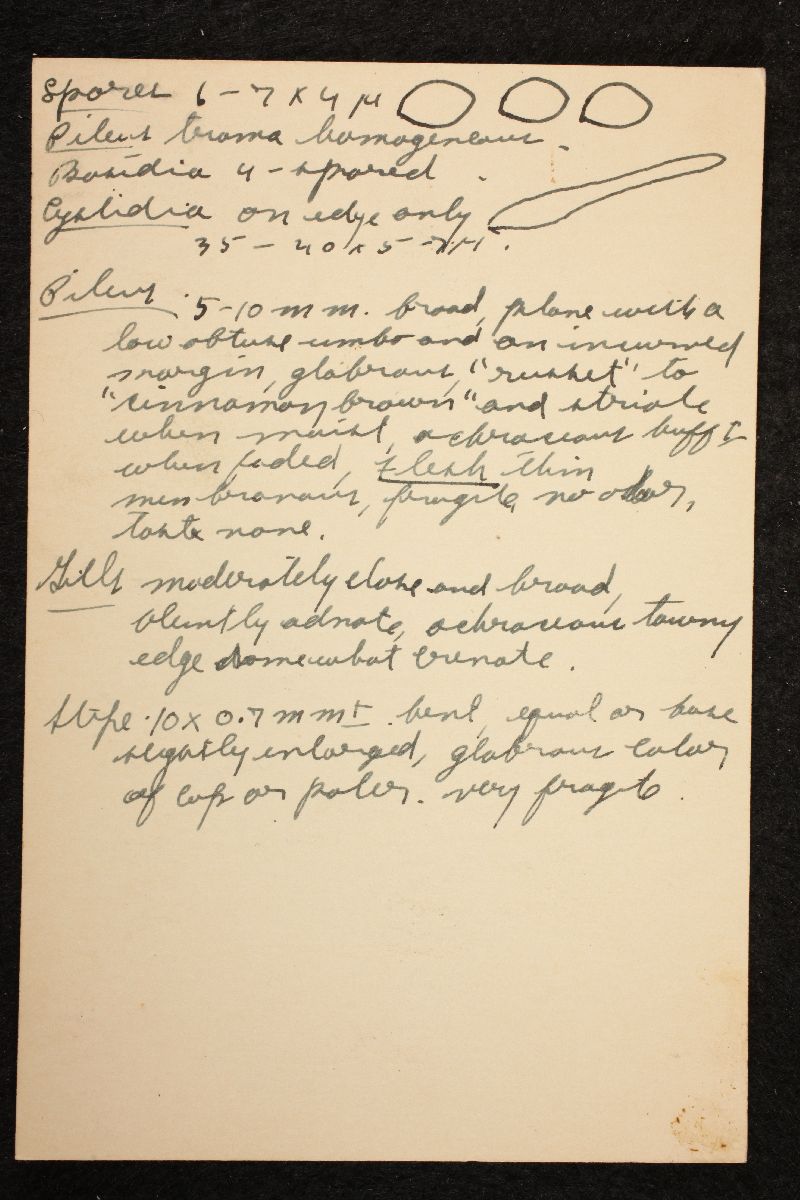 Spores 6-7 x 4 µ
Pileus trama homogeneous.
Basidia 4-spored.
Cystidia on edge only
35-40 x 5-7 µ.
Pileus. 5-10 mm. broad, plane with a
low obtuse umbo and an incurved
margin, glabrous, "russet" to
"cinnamon brown" and striate
when moist, ochraceous buff ±
when faded, flesh thin
membranous, fragile, no odor,
taste none.
Gills moderately close and broad,
bluntly adnate, ochraceous tawny
edge somewhat crenate.
Stipe. 10 x 0.7 mm ±. bent, equal or base
slightly enlarged, glabrous color
of cap or paler. very fragile.